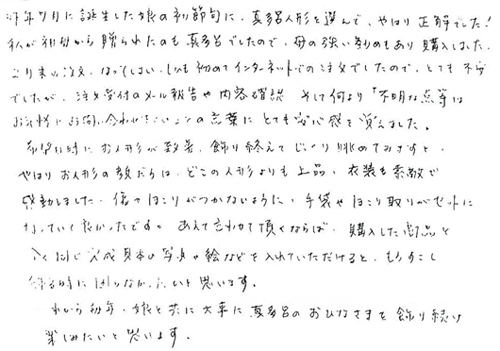 昨年7月に誕生した娘の初節句に、真多呂人形を選んで、やはり正解でした!
私が祖母から贈られたのも真多呂でしたので、母の強い勧めもあり購入しました。
注文、なってしまい、しかも初めてインターネットでの注文でしたので、とても不安
でしたが、注文受付のメール報告や内容確認、そして何より「不明な点等は
お気軽にお問い合わせ下さい」の言葉にとても安心感を覚えました。
希望日時にお人形が到着、飾り終えてじっくり眺めてみますと、
やはりお人形のお顔だちは、どこの人形よりも上品、衣装も素敵で
感動しました。ほこりがつかないように、手袋やほこり取りがセットに
なっていて良かったです。あえて言わせて頂くならば、購入した商品と
同じ完成見本の写真や絵などを入れていただけると、もう少し
飾る時に困らなかったと思います。
これから毎年、娘と共に大事に真多呂のおひなさまを飾り続け
楽しみたいと思います。